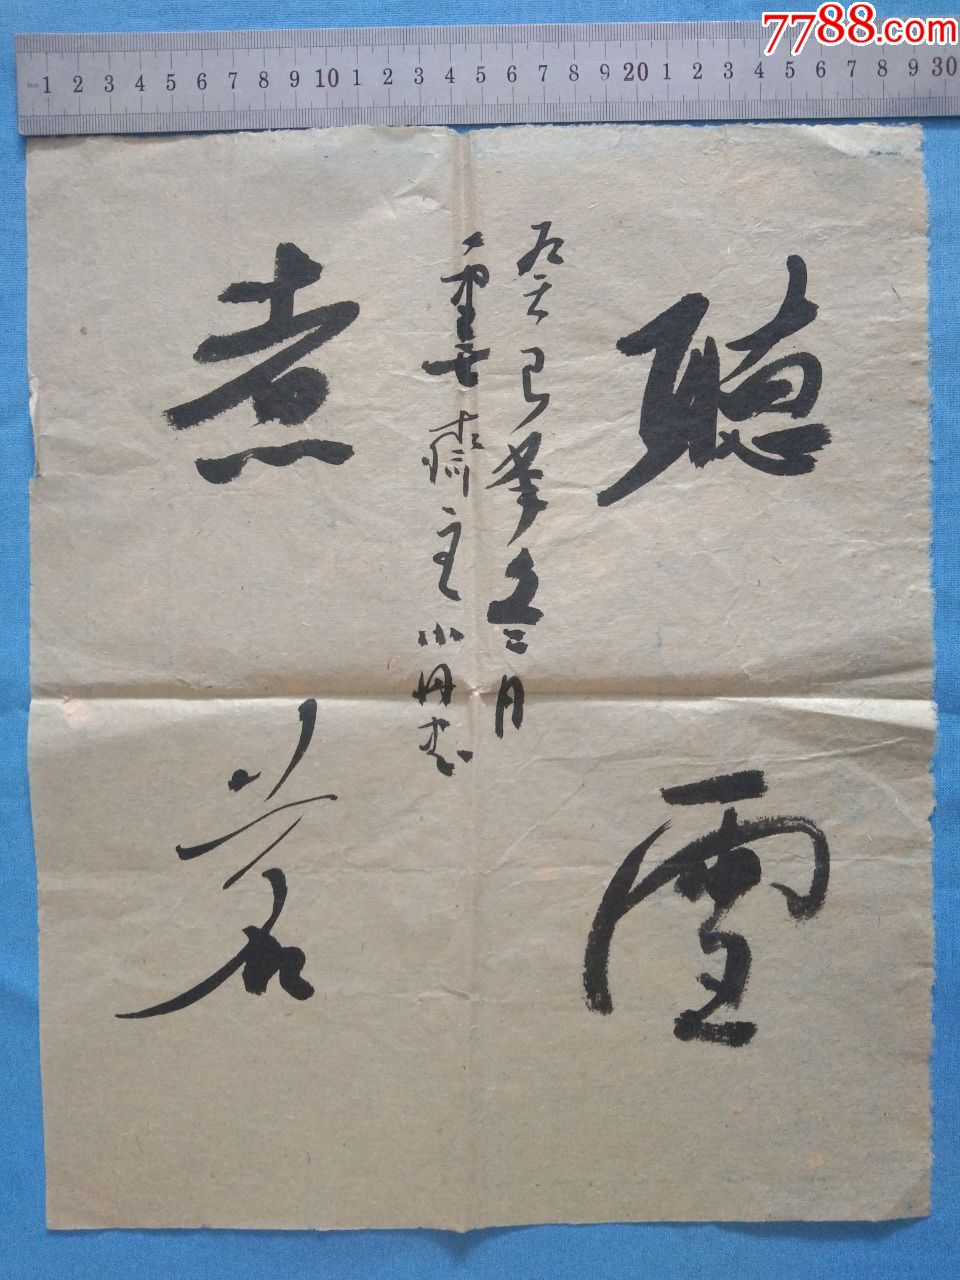 7788.com
mm 1 2 3 4 5 6 7 8 9 10 1 2 3 4 5 6 7 8 9 20 1 2 3 4 5 6 7 8 9 30
聽雪
癸巳冬二月
重齋主小丹书
煮茗